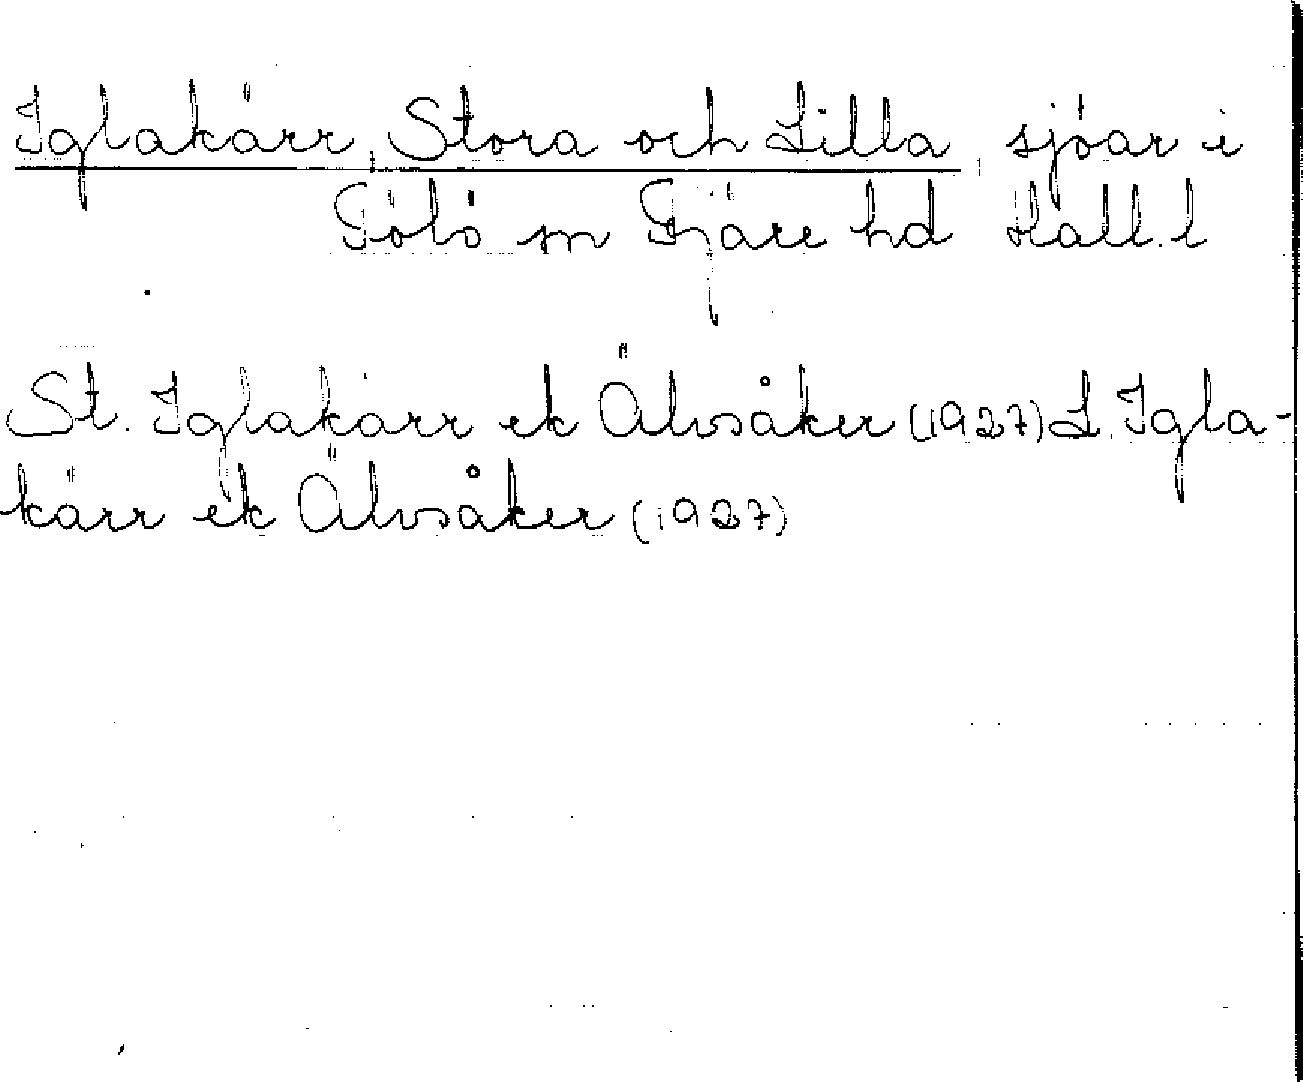 Iglakärr, Stora och Lilla, sjöar i
Tölö sn Fjäre hd Hall. l
St. Iglakärr ek Älvsåker (1927) L. Igla-
kärr ek Älvsåker (1927)